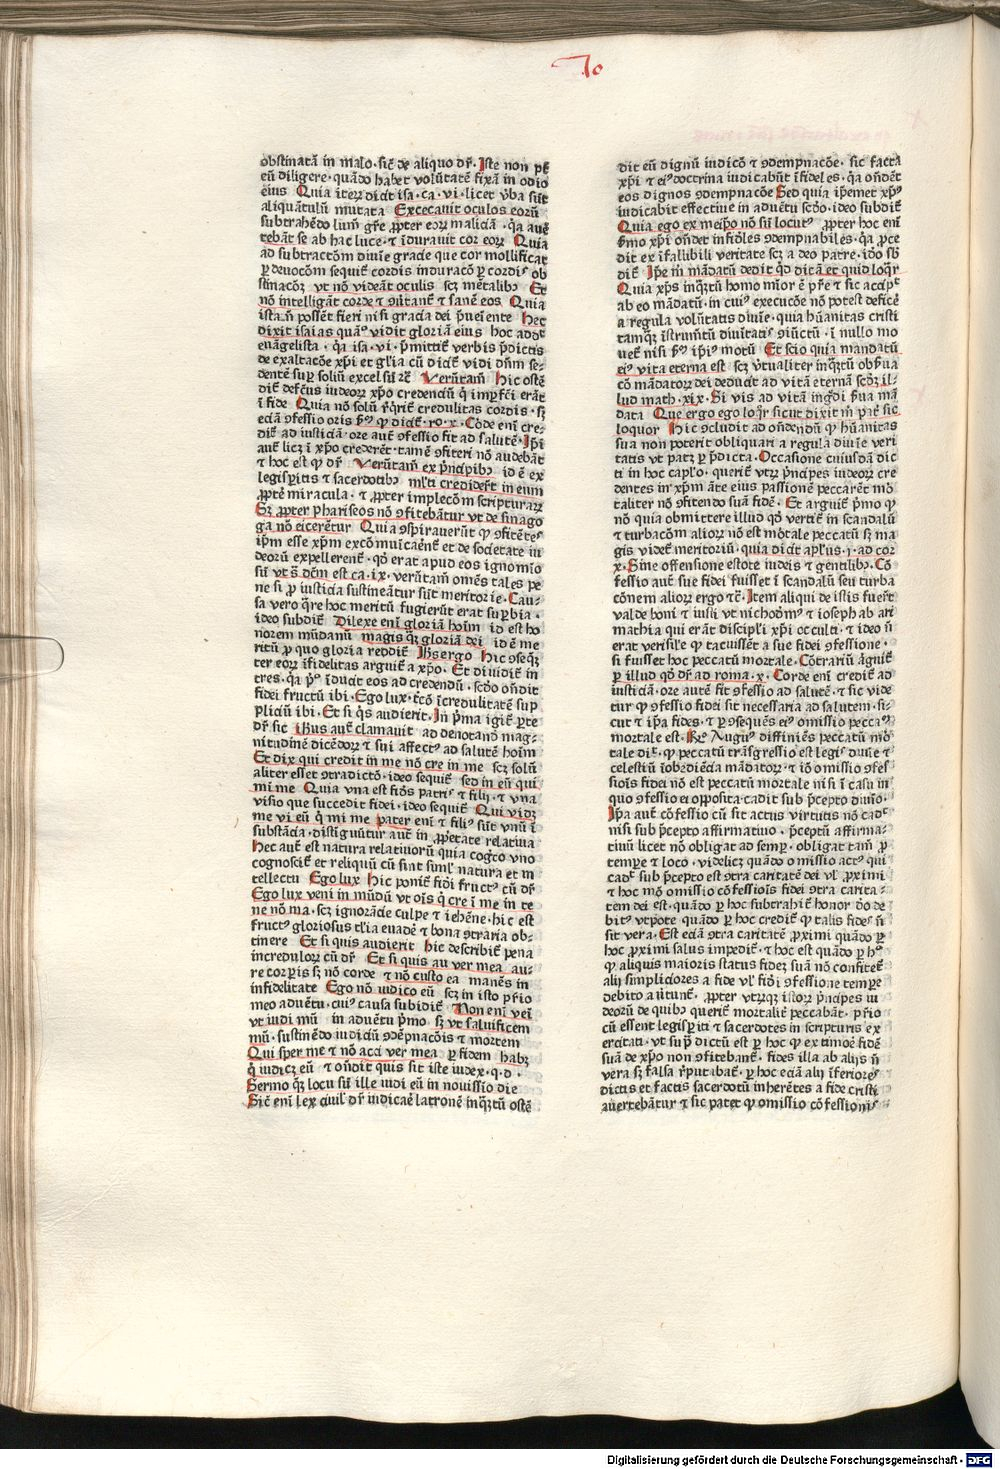 Jo
obstinatā in malo · sic̄ de aliquo dr̄ · Iste non pt̄
eū diligere · quādo habet volūtatē fixā in odio
eius Quia iterꝝ dicit isa · ca · vi · licet v̄ba sūt
aliquātulū mutata Excecauit oculos eorū
subtrahēdo lum̄ gr̄e ꝓpter eorꝝ maliciā · q̄a auer
tebāt se ab hac luce · ⁊ īdurauit cor eorꝝ Quia
ad subtractōm diuīe gracie que cor mollificat
ꝑ deuotōm sequit̄ cordis induracō ꝑ cordis ob
stinacōꝫ vt nō videāt oculis scꝫ mētalibꝫ Et
nō intelligāt corde ⁊ ꝯūtant̄ ⁊ sanē eos Quia
ista n̄ possēt fieri nisi gracia dei p̄ueniente Hec
dixit isaias quān̄ vidit gloriā eius hoc addt̄
euāgelista · q̄a isa · vi · p̄mittit̄ verbis p̄dictis
de exaltacōe xp̄i et gl̄ia cū dicit̄ vidi dn̄m se⸗
dentē suꝑ soliū excelsū ⁊c̄ Verūtam̄ Hic ostē
dit̄ defcūs iudeorꝝ xp̄o credenciū q̄ imꝑfc̄i erāt
ī fide Quia nō solū rꝗrit̄ credulitas cordis · sꝫ
eciā ꝯfessio oris p̄ꝰ ꝙ dicit̄ · ro · x · Corde eni cre⸗
dit̄ ad iusticiā · ore aut̄ ꝯfessio fit ad salutē · Ip̄i
aut̄ licꝫ ī xp̄o crederēt · tamē ꝯfiteri nō audebāt
⁊ hoc est ꝙ dr̄ · Verūtam̄ ex p̄ncipibꝫ id ē ex
legisꝑitis ⁊ sacerdotibꝫ ml̄ti crediderūt in eum
ꝓpt̄ miracula · ⁊ ꝓpter implecōm scripturarꝝ
Sꝫ ꝓpter phariseos nō ꝯfitebātur vt de sinago
ga nō eicerētur Quia ꝯspirauerūt ꝙ ꝯfitētes
ip̄m esse xp̄m excōmuīcarent̄ et de societate iu
deorū expellerent̄ · qd̄ erat apud eos ignomio
sū vt s̄ dc̄m est ca · ix · verūtam̄ om̄es tales pe
ne si ꝓ iusticia sustineātur sūt meritorie · Cau⸗
sa vero q̄re hoc meritū fugierūt erat suꝑbia ·
ideo subdit̄ Dilexe eni gloriā hoīm id est ho
norem mūdanū magis qꝫ gloriā dei id ē me
ritū ꝓ quo gloria reddit̄ Ihs ergo Hic ꝯseqꝫ
ter eorꝝ īfidelitas arguit̄ a xp̄o · Et diuidit̄ in
tres · q̄a p̄ꝰ īducit eos ad credendū · scd̄o on̄dit
fidei fructū ibi · Ego lux · t̄cō īcredulitatē sup
pliciū ibi · Et si q̄s audierit · In p̄ma igit̄ ꝑte
dr̄ sic Ihus aut̄ clamauit ad denotand mag⸗
nitudinē dicēdorꝝ ⁊ sui affectꝰ ad salutē hoīm
Et dix qui credit in me nō cre in me scꝫ solū
aliter esset ꝯtradictō · ideo sequit̄ sed in eū qui
mi me Quia vna est fidos patris ⁊ filij · ⁊ vna
visio que succedit fidei · ideo sequit̄ Qui vidꝫ
me vi eū q̄ mi me pater eni ⁊ filiꝰ sūt vnū ī
substācia · distiguūtur aut̄ in ꝓp̄etate relatiua
Hec aut̄ est natura relatiuorū quia cogto vno
cognoscit̄ et reliquū cū sint simꝉ natura et in
tellectu Ego lux Hic ponit̄ fidei fructꝰ cū dr̄
Ego lux veni in mūdū vt oīs q̄ cre ī me in te
ne nō ma · scꝫ ignorācie culpe ⁊ iehēne · hic est
fructꝰ gloriosus tl̄ia euadē ⁊ bona ꝯtraria ob⸗
tinere Et si quis audierit Hic describit̄ pena
incredulorꝝ cū dr̄ · Et si quis au ver mea au⸗
re corꝑis sꝫ nō corde ⁊ nō custo ea manēs in
infidelitate Ego nō iudico eū scꝫ in isto p̄rio
meo aduētu · cuiꝰ causa subidit̄ Non eni vei
vt iudi mū in aduētu p̄mo sꝫ vt saluificem
mū · sustinēdo iudiciū ꝯdēpnacōis ⁊ mortem
Qui sper me ⁊ nō acci ver mea ꝑ fidem habꝫ
q̄ iudicꝫ eū ⁊ on̄dit quis sit iste iudex · q · d ·
Sermo qꝫ locu sū ille iudi eū in nouissio die
Sic̄ eni lex ciuil dr̄ iudicare latronē inqꝫtū ostē
dit eū dignū iudicō ⁊ ꝯdempnacōe · sic facta
xp̄i ⁊ eiꝰ doctrina iudicabūt īfideles · q̄a on̄dēt
eos dignos ꝯdempnacōe Sed quia ip̄emet xp̄ꝰ
iudicabit effectiue in aduētu scd̄o · ideo subdit̄
Quia ego ex meip̄o nō sū locutꝰ ꝓpter hoc eni
s̄mo xp̄i on̄det infid̄les ꝯdempnabiles · q̄a ꝓce
dit ex īfallibili veritate scꝫ a deo patre · ido sb̄
dit̄ Ip̄e m̄ mādatū dedit qd̄ dicā et quid loq̄r
Quia xp̄s inqꝫtū homo mīor ē p̄re ⁊ sic accipt̄
ab eo mādatū · in cuiꝰ execucōe nō potest defic̄e
a regula volūtatis diuīe · quia hūanitas cristi
tamqꝫ īstrumētū diuitatis ꝯiūctū · ī nullo mo
uet̄ nisi p̄ꝰ ip̄iꝰ motū Et scio quia mandatū
eiꝰ vita eterna est scꝫ v̄tualiter inqꝫtū obp̄ua
cō mādatorꝝ dei deducit ad vitā eternā scd̄ꝫ il⸗
lud math · xix · Si vis ad vitā ingdi p̄ua mā
data Que ergo ego loq̄r sicut dixit m̄ pat̄ sic
loquor Hic ꝯcludit ad on̄dendū ꝙ hūanitas
sua non poterit obliquari a regula diuīe veri
tatis vt patꝫ ꝑ p̄dicta · Occasione cuiusdā dic
ti in hoc capl̄o · querit̄ vtꝝ p̄ncipes iudeorꝝ cre
dentes in xp̄m āte eius passionē peccarēt mor
taliter nō ꝯfitendo suā fidē · Et arguit̄ p̄mo ꝙ
nō quia obmittere illud qd̄ vertit̄ in scandalū
⁊ turbacōm aliorꝝ nō est mortale peccatū sꝫ ma
gis videt̄ meritoriū · quia dicit apl̄us · j · ad cor
x · Sine offensione estote iudeis ⁊ gentilibꝫ · Cō
fessio aut̄ sue fidei fuisset ī scandalū seu turba
cōnem aliorꝝ ergo ⁊c̄ · Item aliqui de istis fuerūt
valde boni ⁊ iusti vt nichodemꝰ ⁊ ioseph ab ari
mathia qui erāt discipl̄i xp̄i occulti · ⁊ ideo n̄
erat verisil̄e ꝙ tacuissēt a sue fidei ꝯfessione ·
si fuisset hoc peccatū mortale · Cōtrariū arguit̄
ꝑ illud qd̄ dr̄ ad roma · x · Corde eni credit̄ ad
iusticiā · ore autē fit ꝯfessio ad salutē · ⁊ sic vide
tur ꝙ ꝯfessio fidei sit necessaria ad salutem · si⸗
cut ⁊ ip̄a fides · ⁊ ꝑ ꝯsequēs eiꝰ omissio peccatꝫ
mortale est · Rn̄ Augusꝰ diffiniēs peccatū mor
tale dic̄ · ꝙ peccatū trāsgressio est legis diuīe ⁊
celestiū īobediēcia mādatorꝝ · ⁊ iō omissio ꝯfes
siois fidei nō est peccatū mortale nisi ī casu in
quo ꝯfessio ei opposita cadit sub p̄cepto diuīo ·
Ip̄a aut̄ cōfessio cū sit actus virtutis nō cadt̄
nisi sub p̄cepto affirmatiuo · p̄ceptū affirma⸗
tiuū licet nō obligat ad semꝑ · obligat tam̄ ꝓ
tempr̄e ⁊ loco · videlicꝫ quādo omissio actꝰ qui
cadt̄ sub p̄cepto est ꝯtra caritatē dei vl̄ ꝓximi
⁊ hoc mō omissio cōfessiois fidei ꝯtra carita⸗
tem dei est · quādo ꝑ hoc subtrahit̄ honor deo de
bitꝰ vtpote quādo ꝑ hoc credit̄ ꝙ talis fides n̄
sit vera · Est eciā ꝯtra caritatē ꝓximi quādo ꝑ
hoc ꝓximi salus impedit̄ · ⁊ hoc est quādo ꝑ hꝰ
ꝙ aliquis maioris status fidez suā nō confitet̄
alij simpliciores a fide vl̄ fidei ꝯfessione tempr̄e
debito au̓tunt̄ · ꝓpter vtrꝫqꝫ istorꝝ p̄ncipes iu
deorū de quibꝫ querit̄ mortalit̄ peccabāt · p̄rio
cū essent legisꝑiti ⁊ sacerdotes in scripturis ex
ercitati · vt supͣ dictū est ꝑ hoc ꝙ ex timore fidē
suā de xp̄o non ꝯfitebant̄ · fides illa ab alijs n̄
vera sꝫ falsa r̄putabat̄ · ꝑ hoc eciā alij īferiores
dictis et factis sacerdotū inherētes a fide cristi
auertebātur ⁊ sic patet ꝙ omissio cōfessionis
Digitalisierung gefördert durch die Deutsche Forschungsgemeinschaft - DFG